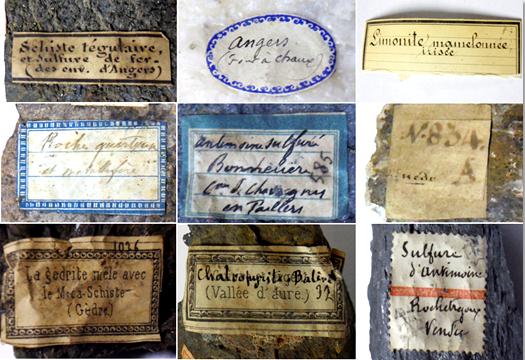 Schiste tégulaire
et Sulfure de fer
(des env. d'Angers)
Angers
(Four à chaux)
Limonite mamelonnée
irisée
Roche quartzeuse
et
Antimoine sulfuré
Bonnelière
Cne de Chavagnes
en Paillers
585
N. 83A.
A
1036
La gédrite mêle avec
le Mica-Schiste
(Gèdre)
Chalcopyrite Balin
(Vallée d'aure.) 92
Sulfure
d'antimoine
Rochetrejoux
Vendée